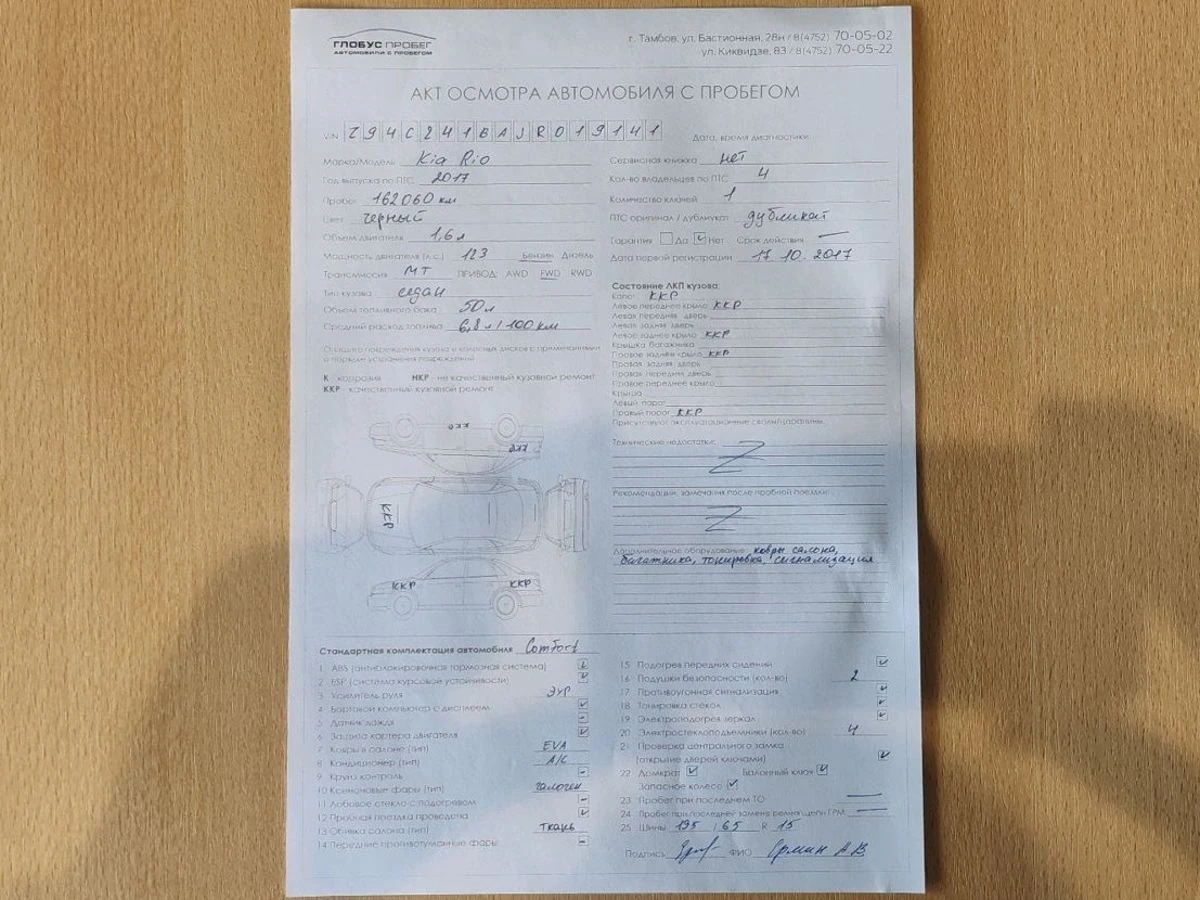 ГЛОБУС ПРОБЕГ
АВТОМОБИЛИ С ПРОБЕГОМ
г. Тамбов, ул. Бастионная, 28н / 8(4752) 70-05-02
ул. Киквидзе, 83 / 8(4752) 70-05-22
АКТ ОСМОТРА АВТОМОБИЛЯ С ПРОБЕГОМ
VIN Z94C241BAJR019141
Дата, время диагностики
Марка/Модель Kia Rio
Год выпуска по ПТС 2017
Пробег 162060 км
Цвет черный
Объем двигателя 1,6 л
Мощность двигателя (л.с.) 123 Бензин Дизель
Трансмиссия МТ ПРИВОД: AWD FWD RWD
Тип кузова седан
Объем топливного бака 50 л
Средний расход топлива 6,8 л / 100 км
Сервисная книжка нет
Кол-во владельцев по ПТС 4
Количество ключей 1
ПТС оригинал / дубликат дубликат
Гарантия Да Нет Срок действия —
Дата первой регистрации 17.10.2017
Опишите повреждения кузова и колесных дисков с примечаниями
о порядке устранения повреждений
К - коррозия НКР - не качественный кузовной ремонт
ККР - качественный кузовной ремонт
ККР
ККР
ККР
ККР
ККР
Состояние ЛКП кузова
Капот ККР
Левое переднее крыло ККР
Левая передняя дверь
Левая задняя дверь
Левое заднее крыло ККР
Крышка багажника
Правое заднее крыло ККР
Правая задняя дверь
Правая передняя дверь
Правое переднее крыло
Крыша
Левый порог
Правый порог ККР
Присутствуют эксплуатационные сколы/царапины.
Технические недостатки: Z
Рекомендации, замечания после пробной поездки: Z
Дополнительное оборудование ковры салона,
багажника, тонировка, сигнализация
Стандартная комплектация автомобиля Comfort
1 ABS (антиблокировочная тормозная система)
2 ESP (система курсовой устойчивости)
3 Усилитель руля ЭУР
4 Бортовой компьютер с дисплеем
5 Датчик дождя –
6 Защита картера двигателя
7 Ковры в салоне (тип) EVA
8 Кондиционер (тип) A/C
9 Круиз контроль –
10 Ксеноновые фары (тип) галоген
11 Лобовое стекло с подогревом –
12 Пробная поездка проведена
13 Обивка салона (тип) ткань
14 Передние противотуманные фары –
15 Подогрев передних сидений
16 Подушки безопасности (кол-во) 2
17 Противоугонная сигнализация
18 Тонировка стекол
19 Электроподогрев зеркал
20 Электростеклоподъемники (кол-во) 4
21 Проверка центрального замка
(открытие дверей ключами)
22 Домкрат Балонный ключ
Запасное колесо
23 Пробег при последнем ТО —
24 Пробег при последней замене ремня/цепи ГРМ —
25 Шины 195 / 65 R 15
Подпись ФИО Ермин А.В.